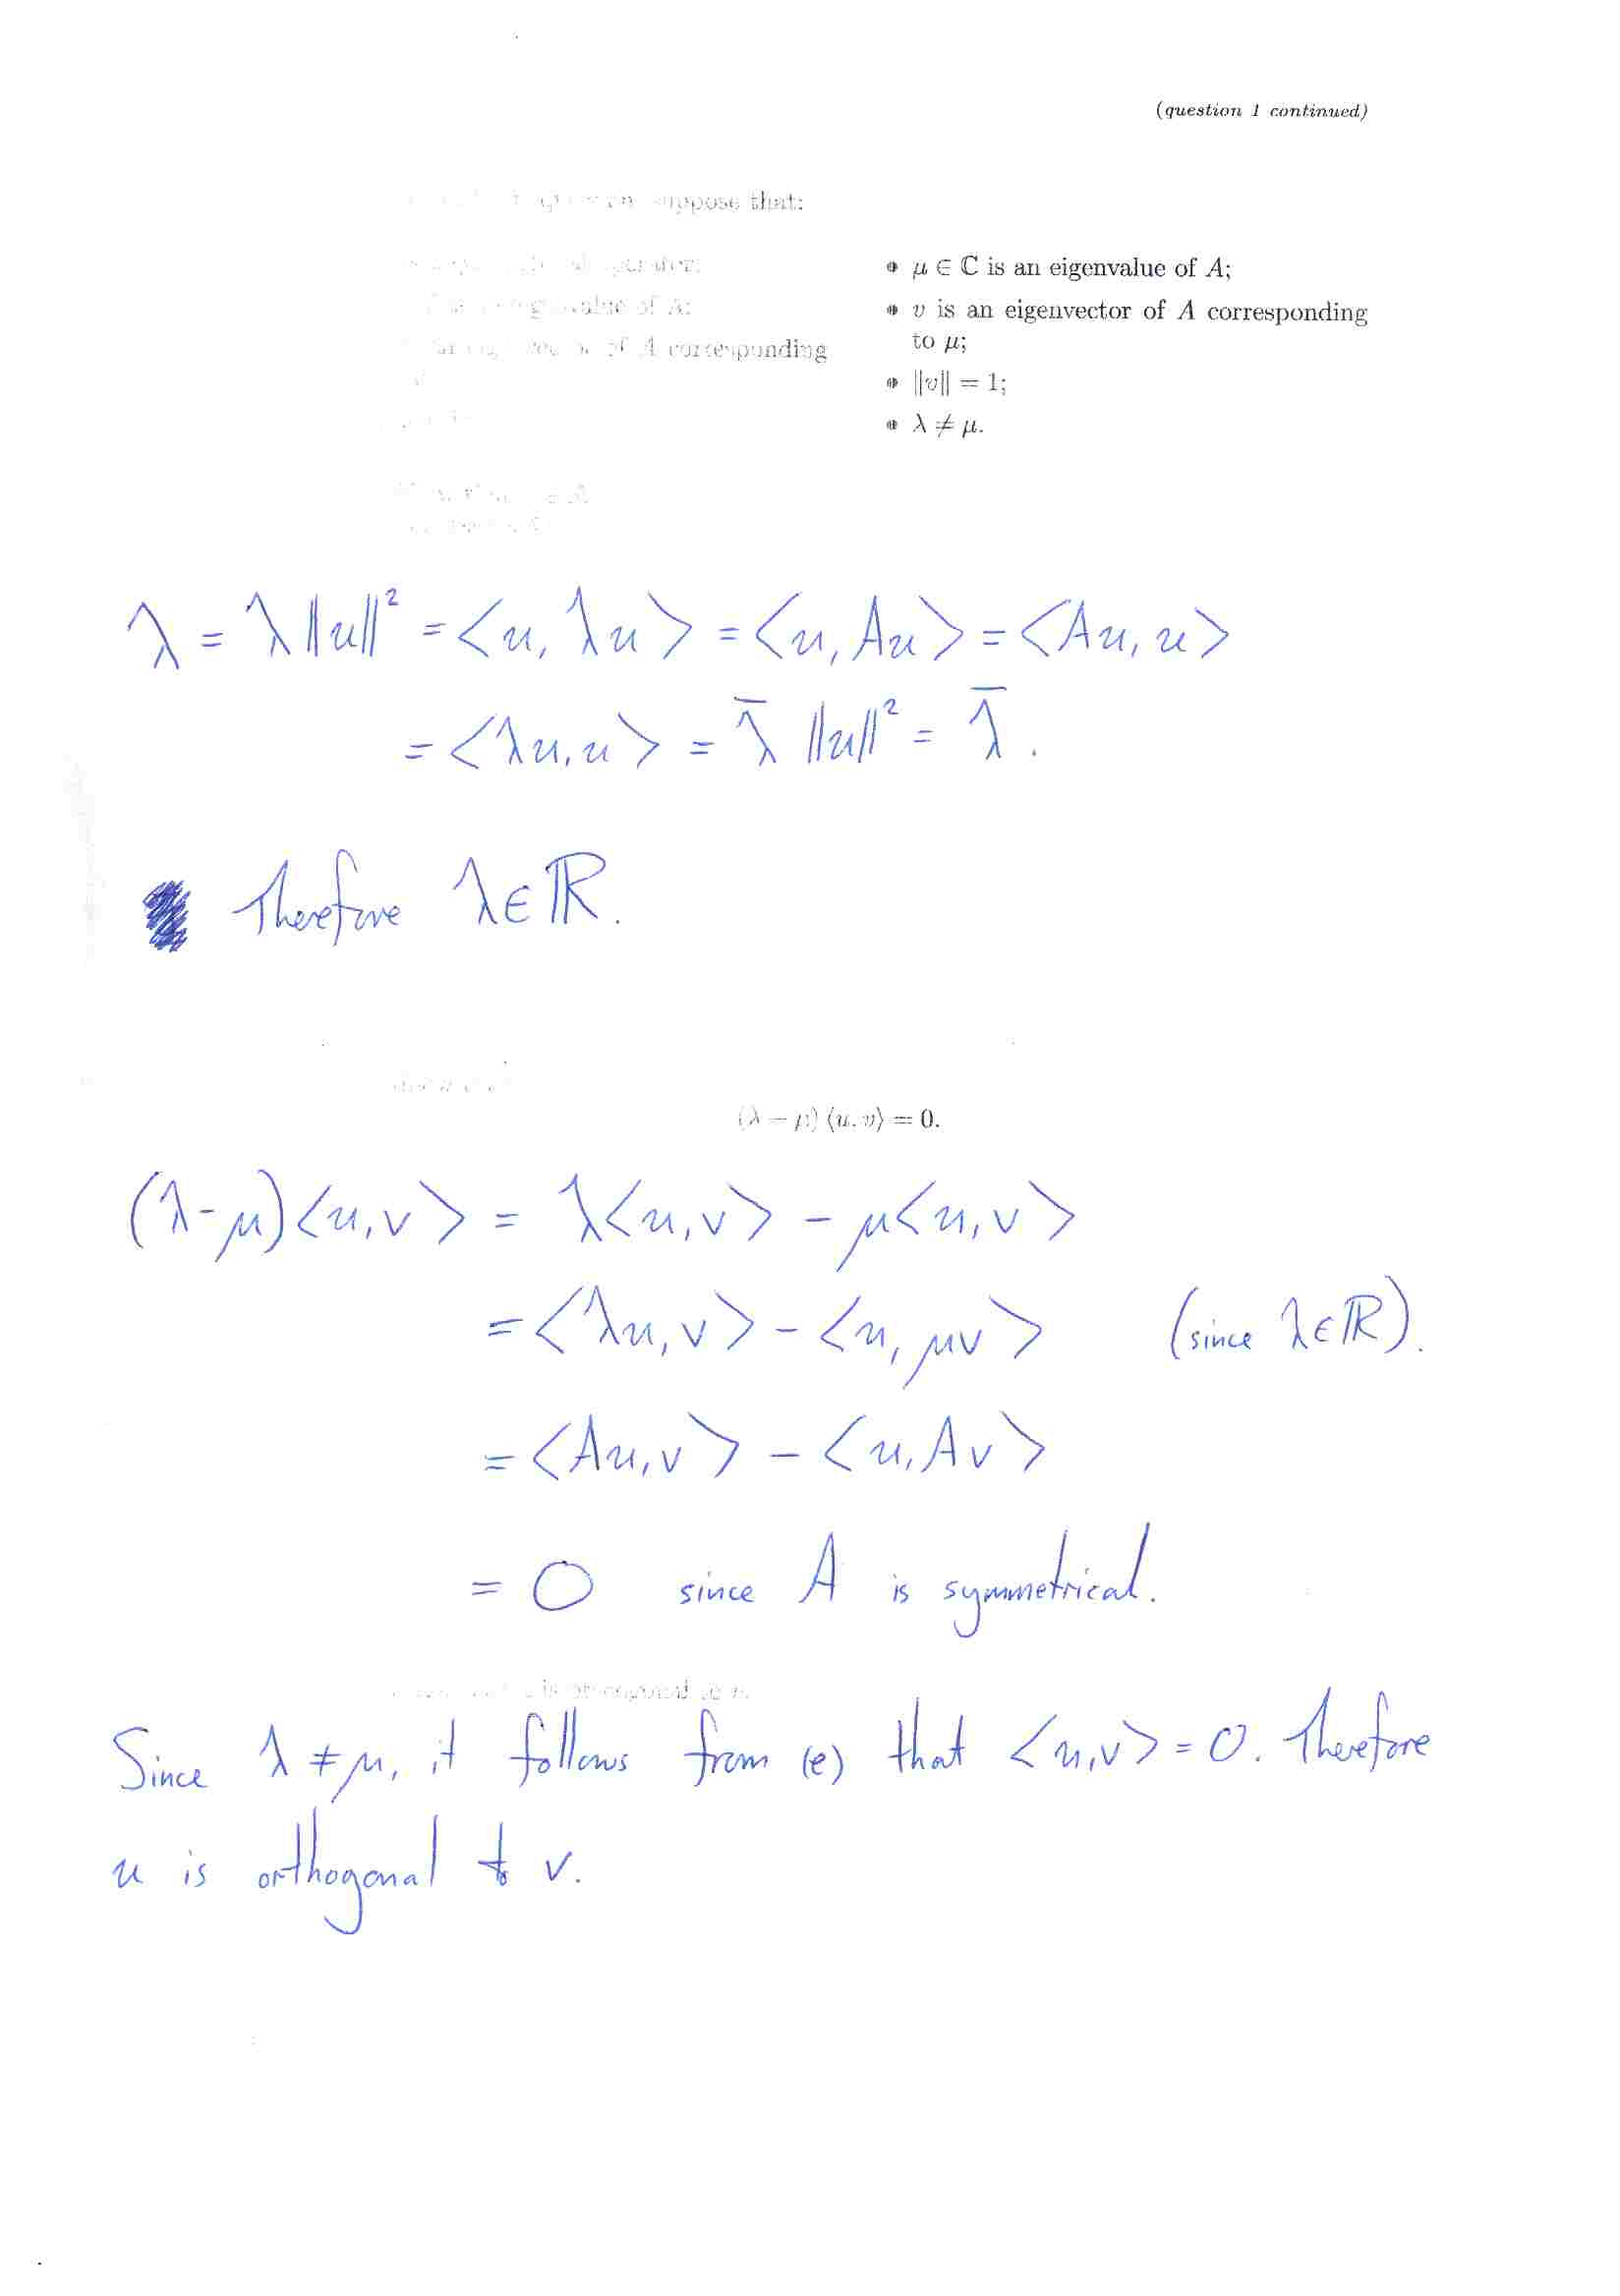 (question 1 continued)
suppose that:
value of A;
of A corresponding
• μ ∈ ℂ is an eigenvalue of A;
• v is an eigenvector of A corresponding
to μ;
• ‖v‖ = 1;
• λ ≠ μ.
λ = λ‖u‖² = ⟨u, λu⟩ = ⟨u, Au⟩ = ⟨Au, u⟩
= ⟨λu, u⟩ = λ̄ ‖u‖² = λ̄.
Therefore λ ∈ ℝ.
(λ − μ) ⟨u, v⟩ = 0.
(λ-μ)⟨u, v⟩ = λ⟨u, v⟩ − μ⟨u, v⟩
= ⟨λu, v⟩ − ⟨u, μv⟩ (since λ ∈ ℝ).
= ⟨Au, v⟩ − ⟨u, Av⟩
= 0 since A is symmetrical.
Since λ ≠ μ, it follows from (e) that ⟨u,v⟩ = 0. Therefore
u is orthogonal to v.